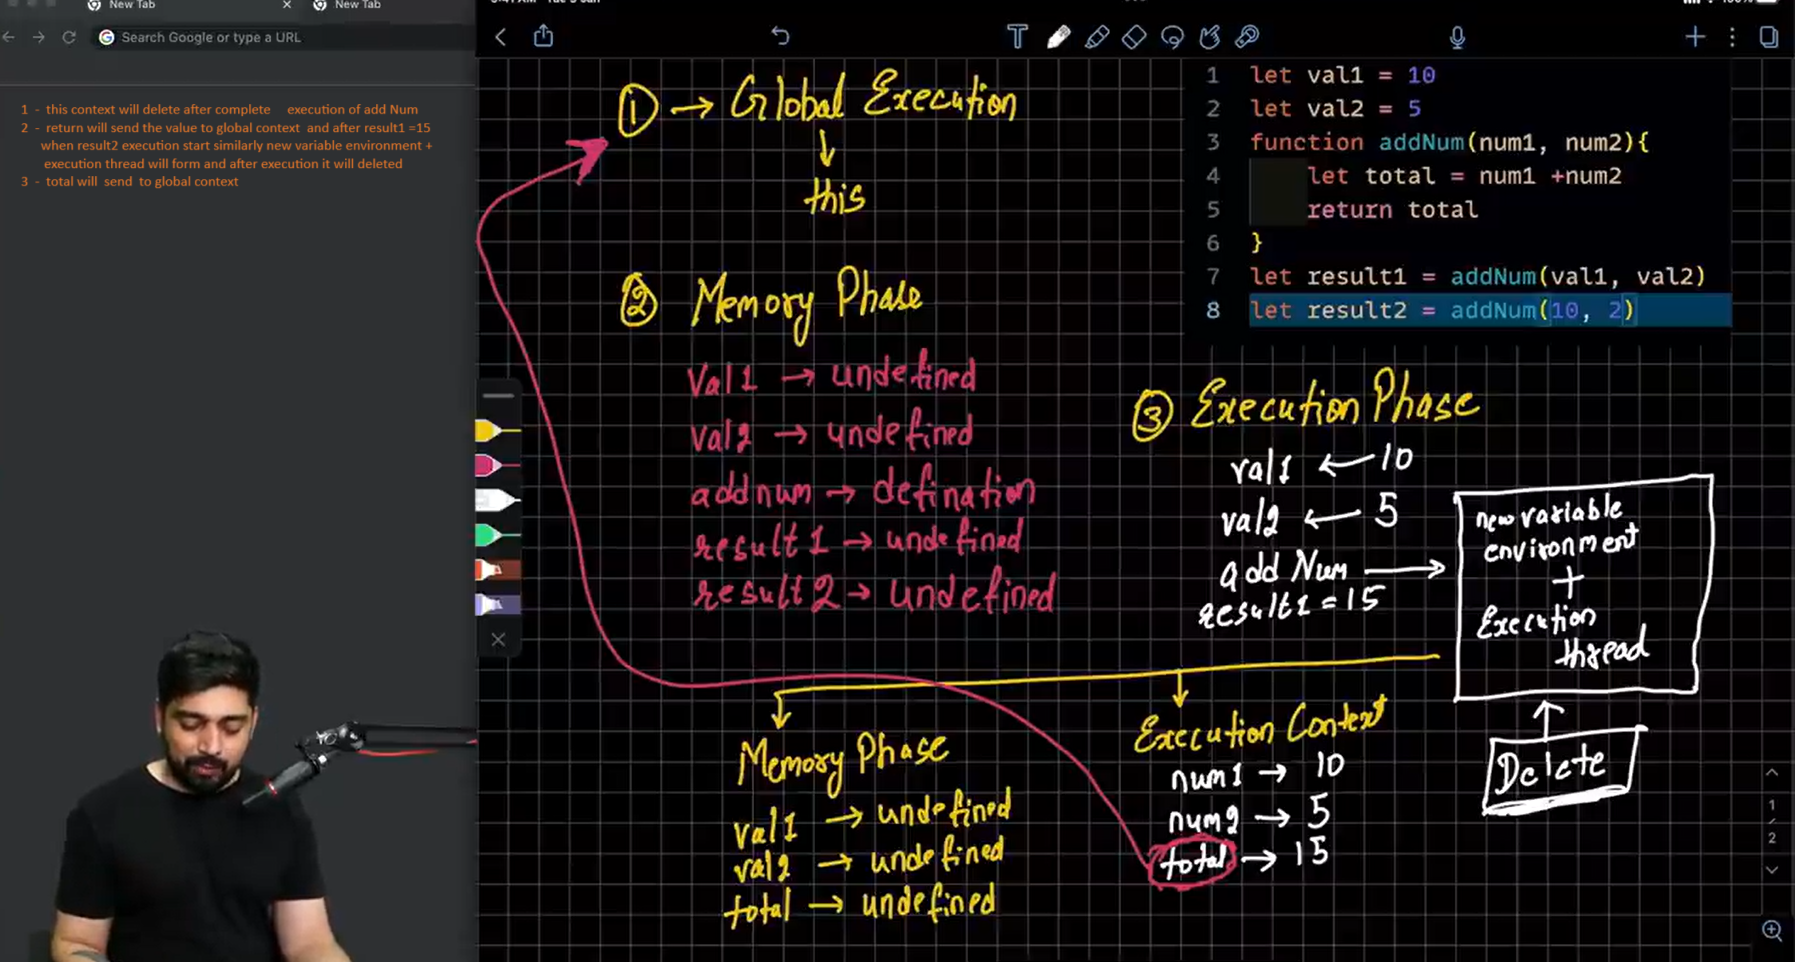 New Tab
New Tab
Search Google or type a URL
1 - this context will delete after complete execution of add Num
2 - return will send the value to global context and after result1 =15
when result2 execution start similarly new variable environment +
execution thread will form and after execution it will deleted
3 - total will send to global context
① → Global Execution
this
② Memory Phase
Val1 → undefined
val2 → undefined
addnum → defination
result1 → undefined
result2 → undefined
1 let val1 = 10
2 let val2 = 5
3 function addNum(num1, num2){
4 let total = num1 +num2
5 return total
6 }
7 let result1 = addNum(val1, val2)
8 let result2 = addNum(10, 2)
③ Execution Phase
val1 ← 10
val2 ← 5
add Num →
result1 = 15
new variable
environment
+
Execution
thread
Delete
Memory Phase
val1 → undefined
val2 → undefined
total → undefined
Execution Context
num1 → 10
num2 → 5
total → 15
1
2